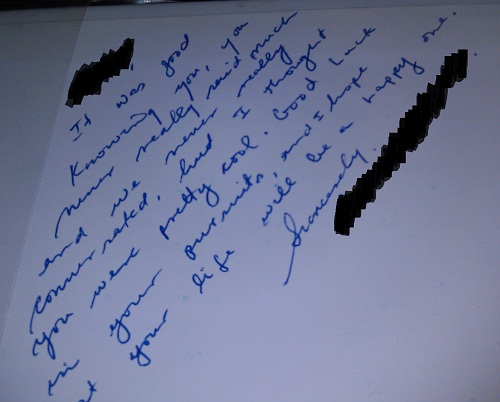 It was good
Knowing you, you
never really said much
and we never really
conversated, but I thought
you were pretty cool. Good Luck
in your pursuits, and I hope
at your life will be a happy one.
Sincerely.